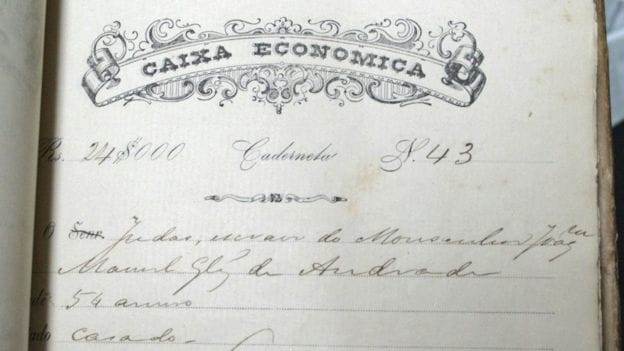 CAIXA ECONOMICA
Rs. 24$000 Caderneta N. 43
O Senr. Judas, escravo do Monsenhor Joaqm
Manuel Glz de Andrade
54 annos
casado